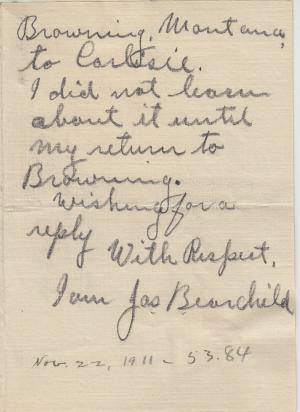 Browning, Montana,
to Carlisle.
I did not learn
about it until
my return to
Browning.
Wishing for a
reply
With Respect,
I am Jas Bearchild
Nov. 22, 1911 - 53.84